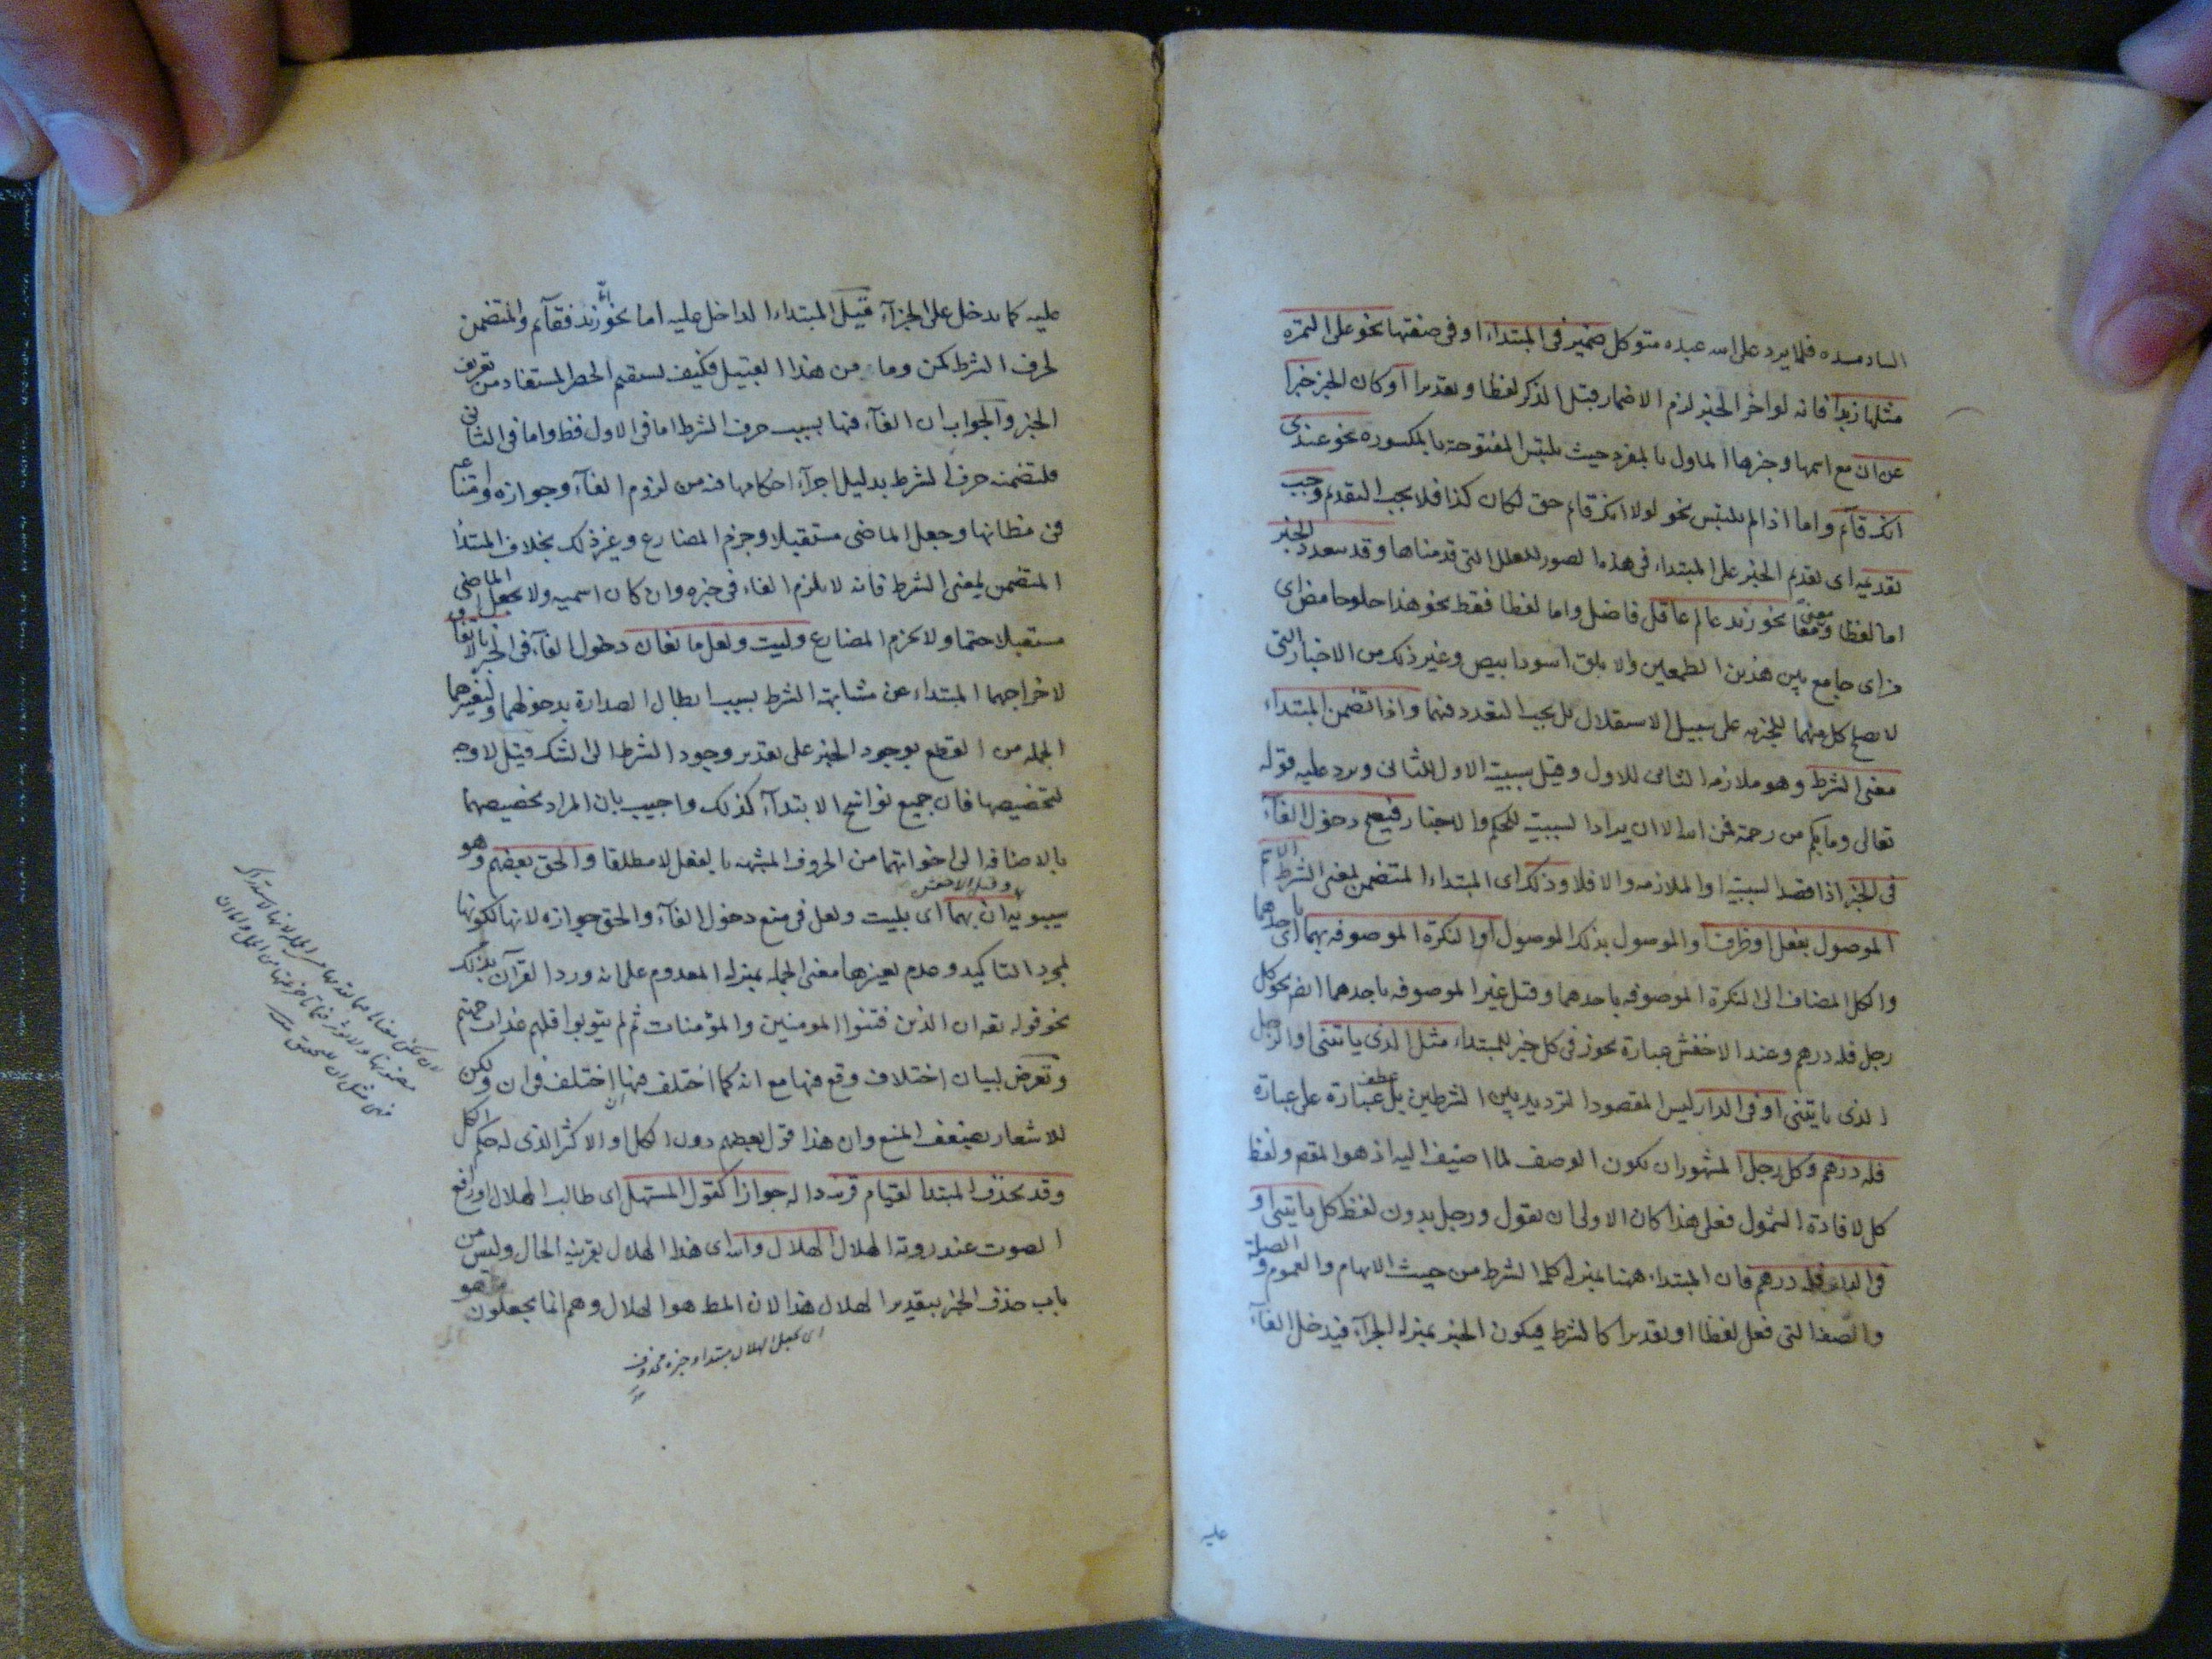 الساد مسده فلا يرد على الله عبده متوكل ضمير فى المبتداء او فى صفتها نحو على التمرة
مثلها زبدا فانه لو اخر الخبر لزم الاضمار قبل الذكر لفظا وتقديرا او كان الخبر خبرا
عن ان مع اسمها وخبرها الماول بالمفرد حيث يلتبس المفتوحة بالمكسوره نحو عندى
انك قائم واما اذا لم يلتبس نحو لولا انك قائم حق لكان كذا فلا يجب التقدم وجب
تقديمه اى تقديم الخبر على المبتداء فى هذه الصور للعلل التى قدمناها وقد يتعدد الخبر
اما لفظا ومعنى نحو زيد عالم عاقل فاضل واما لفظا فقط نحو هذا حلو حامض اى
مز اى جامع بين هذين الطعمين والابلق اسود ابيض وغير ذلك من الاخبار التى
لا يصلح كل منهما للخبريه على سبيل الاستقلال بل يجب التعدد فيهما واذا تضمن المبتداء
معنى الشرط وهو ملازمه الثانى للاول وقيل سببية الاول للثانى ويرد عليه قوله
تعالى وما بكم من رحمة فمن الله الا ان يراد السببية للحكم والاخبار فيصح دخول الفآء
فى الخبر اذا قصد السببية او الملازمه والا فلا وذلك اى المبتداء المتضمن لمعنى الشرط الاسم
الموصول بفعل او ظرف او الموصول بذلك الموصول او النكرة الموصوفه بهما اى باحدهما
والكل المضاف الى النكرة الموصوفه باحدهما وقيل غير الموصوفه باحدهما ايضا نحو كل
رجل فله درهم وعند الاخفش عبارة يجوز فى كل خبر للمبتداء مثل الذى ياتينى او الرجل
الذى ياتينى او فى الدار ليس المقصود الترديد بين الشرطين بل عطف عبارة على عبارة
فله درهم وكل رجل المشهور ان يكون الوصف لما اضيف اليه اذ هو المقصم ولفظ
كل لافادة الشمول فعلى هذا كان الاولى ان يقول ورجل بدون لفظ كل ياتينى او
فى الدار فله درهم فان المبتداء ههنا بمنزله كلمه الشرط من حيث الابهام والعموم والصلة
والصفه التى فعل لفظا او تقديرا كالشرط فيكون الخبر بمنزله الجزآء فيدخل الفآء
عليه
عليه كما يدخل على الجزآء قيل المبتداء الداخل عليه اما نحو اما زيد فقآئم والمتضمن
لحرف الشرط كمن وما من هذا القبيل فكيف يستقيم الحصر المستفاد من تعريف
الخبر والجواب ان الفآء فيها بسبب حرف الشرط اما فى الاول فقط واما فى الثانى
فلتضمنه حرف الشرط بدليل اجرآء احكامها فيه من لزوم الفآء وجوازه وامتناعه
فى مظانها وجعل الماضى مستقبلا وجزم المضارع وغير ذلك بخلاف المبتدا
المتضمن لمعنى الشرط فانه لا يلزم الفاء فى خبره وان كان اسميه ولا يجعل الماضى
مستقبلا حتما ولا يجزم المضارع وليت ولعل مانعان دخول الفآء فى الخبر بالاتفاق
لاخراجهما المبتداء عن مشابهة الشرط بسبب ابطال الصدارة بدخولهما وتغييرهما
الجمله من القطع بوجود الخبر على تقدير وجود الشرط الى الشك قيل لا وجه
لتخصيصها فان جميع نواسخ الابتدآء كذلك واجيب بان المراد تخصيصهما
بالاضافه الى اخواتهما من الحروف المشبهه بالفعل لا مطلقا والحق بعضهم وهو
وقيل الاخفش
سيبويه ان بهما اى بليت ولعل فى منع دخول الفآء والحق جوازه لانها لكونها
لمجرد التاكيد وعدم تغيرها معنى الجمله بمنزله المعدوم على انه ورد القرآن بذلك
نحو قوله تعه ان الذين فتنوا المومنين والمؤمنات ثم لم يتوبوا فلهم عذاب جهنم
وتعرض لبيان اختلاف وقع فيها مع انه كما اختلف فيها اختلف فى ان ولكن
للاشعار بضعف المنع وان هذا قول بعضهم دون الكل او الاكثر الذى له حكم الكل
وقد يحذف المبتدا لقيام قرينه داله جوازا كقول المستهل اى طالب الهلال او رافع
الصوت عند روية الهلال الهلال والله اى هذا الهلال بقرينه الحال وليس من
باب حذف الخبر بتقدير الهلال هذا لان المط هو الهلال وهم انما يجعلون ما هو
اى يجعل الهلال مبتدا وخبره محذوف